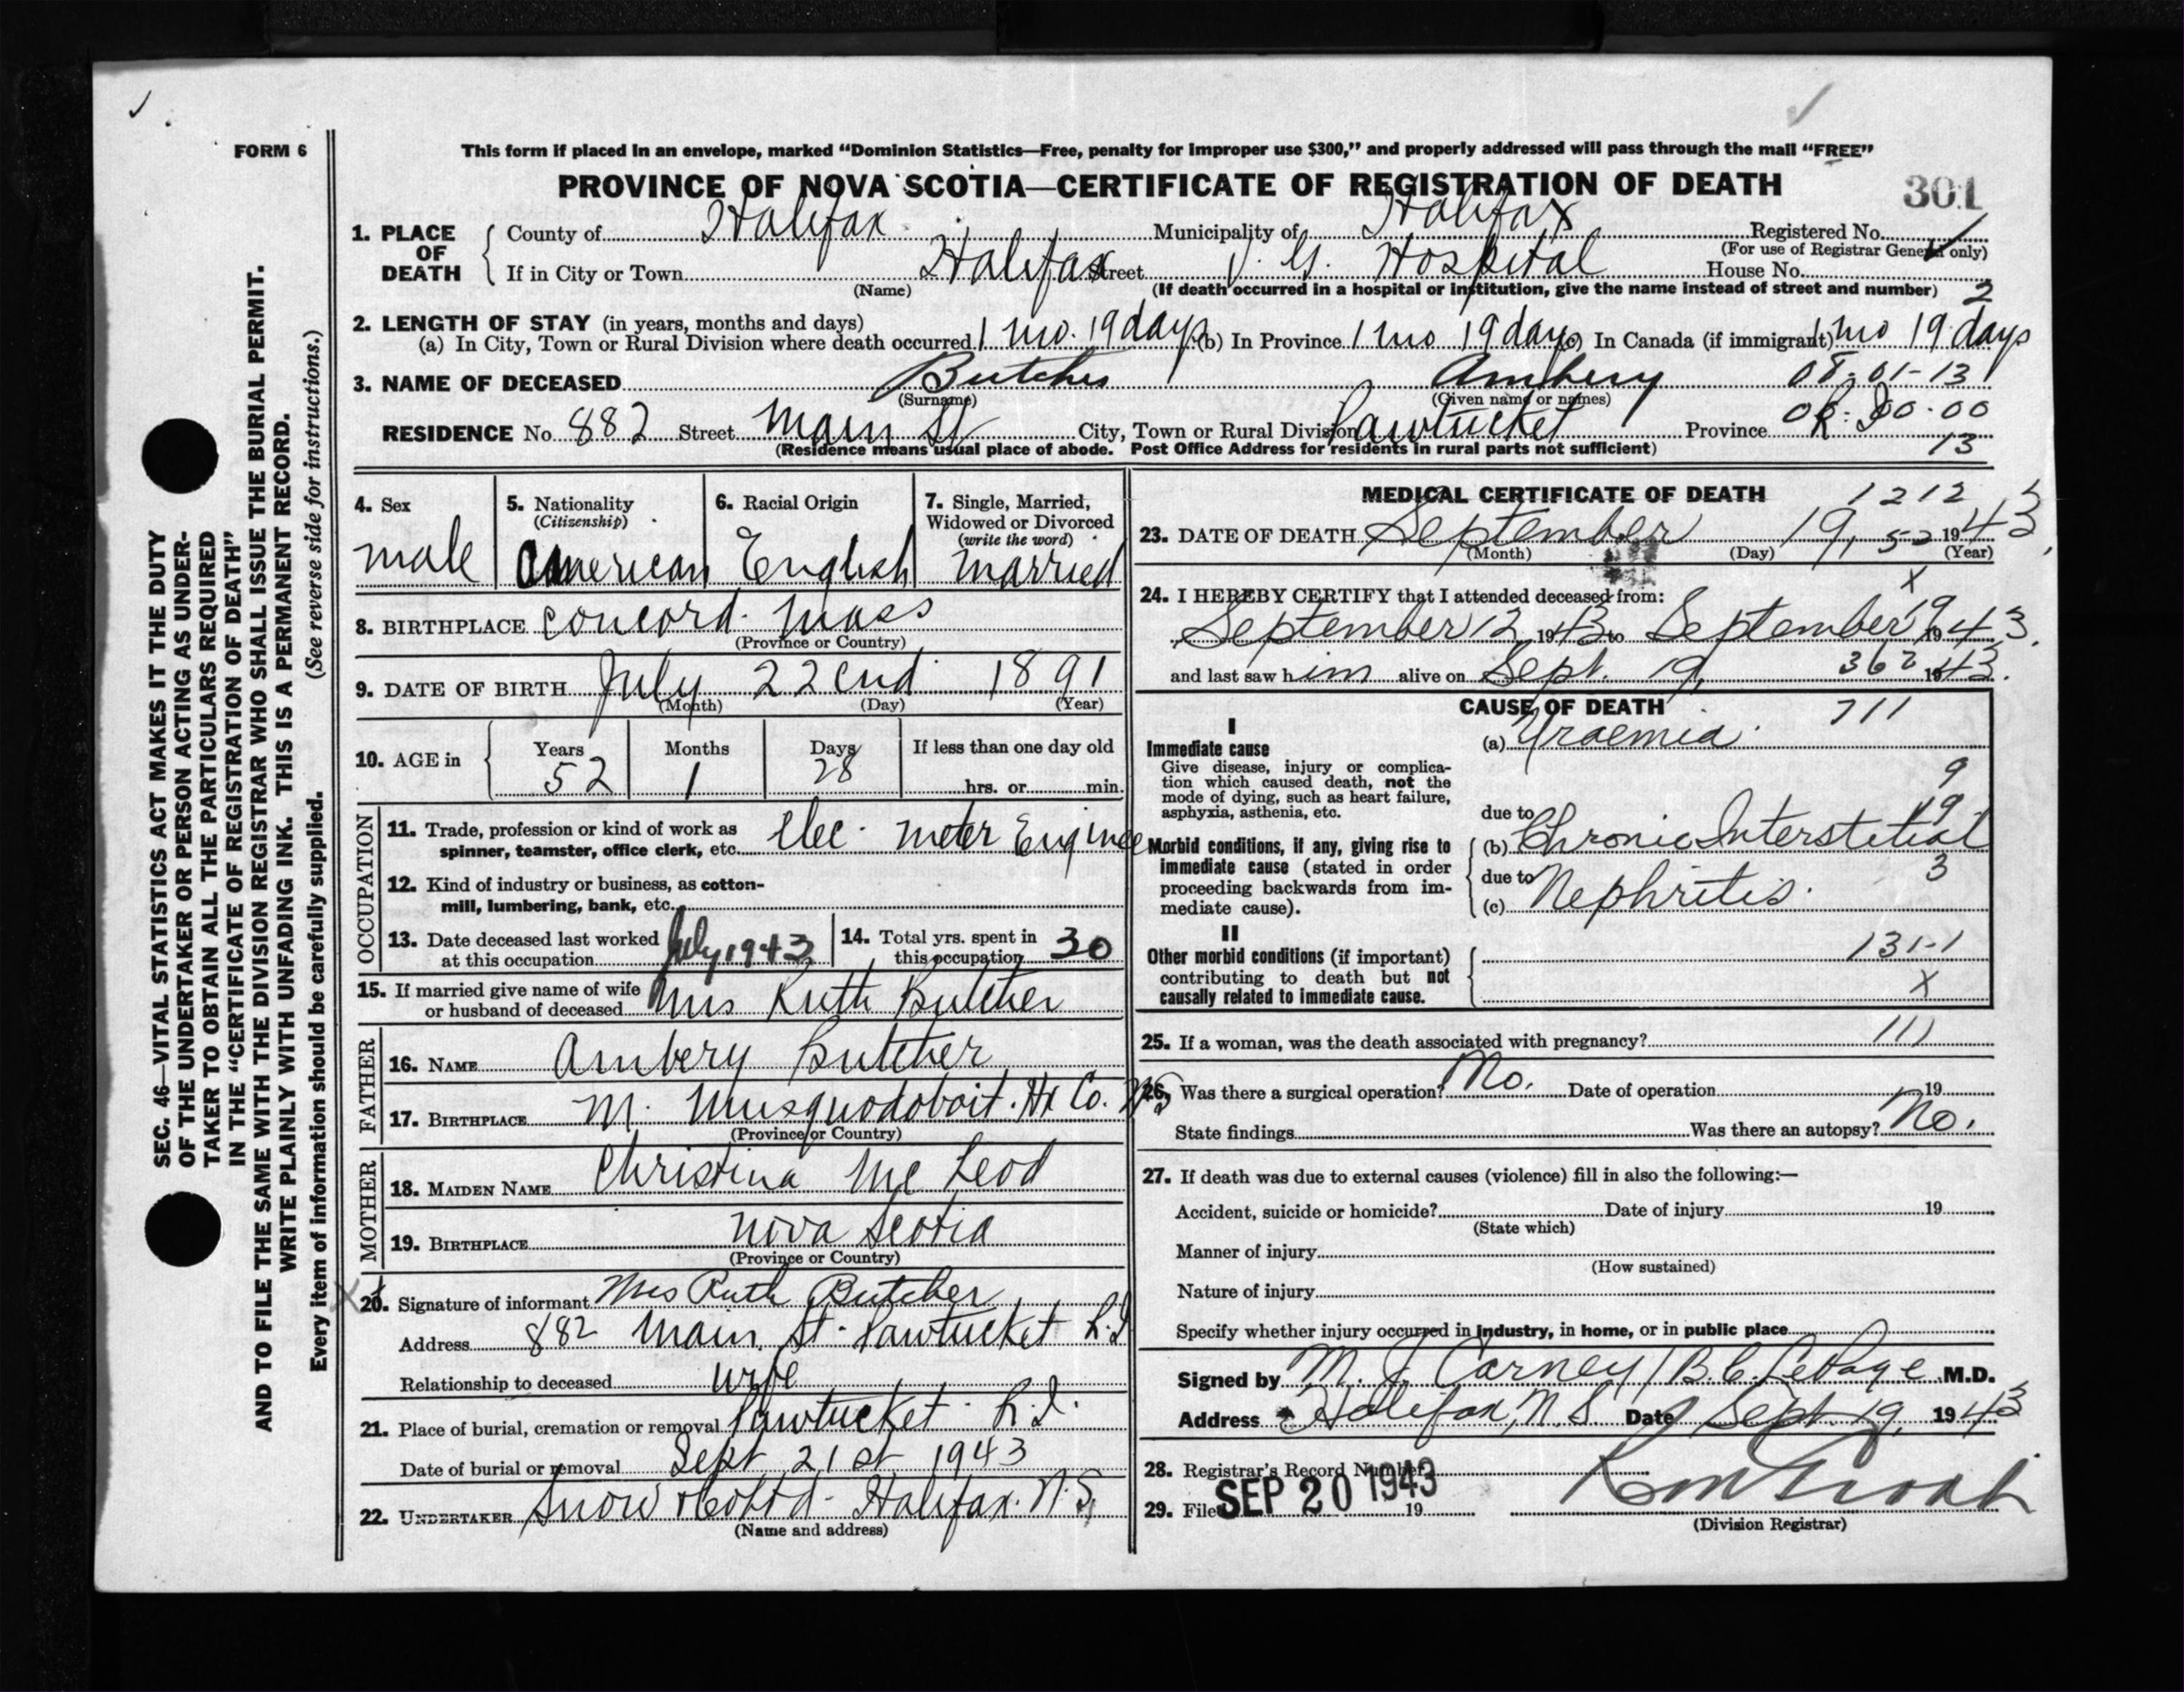 FORM 6
This form if placed in an envelope, marked “Dominion Statistics—Free, penalty for improper use $300,” and properly addressed will pass through the mail “FREE”
PROVINCE OF NOVA SCOTIA—CERTIFICATE OF REGISTRATION OF DEATH
301
1. PLACE OF DEATH
County of Halifax Municipality of Halifax Registered No.
(For use of Registrar General only)
If in City or Town Halifax Street V. G. Hospital House No.
(Name) (If death occurred in a hospital or institution, give the name instead of street and number) 2
2. LENGTH OF STAY (in years, months and days)
(a) In City, Town or Rural Division where death occurred 1 mo. 19 days (b) In Province 1 mo 19 days (c) In Canada (if immigrant) 1 mo 19 days
3. NAME OF DECEASED Butcher Ambery 08-01-13
(Surname) (Given name or names) 00-00
RESIDENCE No. 882 Street Main St City, Town or Rural Division Pawtucket Province R. I
(Residence means usual place of abode. Post Office Address for residents in rural parts not sufficient) 13
4. Sex
male
5. Nationality
(Citizenship)
American
6. Racial Origin
English
7. Single, Married,
Widowed or Divorced
(write the word)
married
8. BIRTHPLACE Concord. Mass
(Province or Country)
9. DATE OF BIRTH July 22end 1891
(Month) (Day) (Year)
10. AGE in
Years Months Days If less than one day old
52 1 28 hrs. or min.
OCCUPATION
11. Trade, profession or kind of work as
spinner, teamster, office clerk, etc. Elec. meter Enginee
12. Kind of industry or business, as cotton-
mill, lumbering, bank, etc.
13. Date deceased last worked
at this occupation July 1943
14. Total yrs. spent in
this occupation 30
15. If married give name of wife
or husband of deceased Mrs Ruth Butcher
FATHER
16. NAME Ambery Butcher
17. BIRTHPLACE M. Musquodoboit. Hx Co. N.S
(Province or Country)
MOTHER
18. MAIDEN NAME Christina Mc Leod
19. BIRTHPLACE Nova Scotia
(Province or Country)
20. Signature of informant Mrs Ruth Butcher
Address 882 Main St. Pawtucket R.I
Relationship to deceased wife
21. Place of burial, cremation or removal Pawtucket. R.I.
Date of burial or removal Sept 21st 1943
22. UNDERTAKER Snow & Co Ltd - Halifax. N.S.
(Name and address)
MEDICAL CERTIFICATE OF DEATH 1212
23. DATE OF DEATH September 19, 52 1943
(Month) (Day) (Year)
24. I HEREBY CERTIFY that I attended deceased from: x
September 12 1943 to September 19 1943.
and last saw him alive on Sept. 19, 362 1943.
CAUSE OF DEATH 711
I
Immediate cause
Give disease, injury or complica-
tion which caused death, not the
mode of dying, such as heart failure,
asphyxia, asthenia, etc.
(a) Uraemia.
9
due to 19
Morbid conditions, if any, giving rise to
immediate cause (stated in order
proceeding backwards from im-
mediate cause).
(b) Chronic Interstitial
due to 3
(c) Nephritis.
II
Other morbid conditions (if important)
contributing to death but not
causally related to immediate cause.
131-1
x
25. If a woman, was the death associated with pregnancy? 111
26. Was there a surgical operation? No. Date of operation 19
State findings Was there an autopsy? No.
27. If death was due to external causes (violence) fill in also the following:—
Accident, suicide or homicide? Date of injury 19
(State which)
Manner of injury
(How sustained)
Nature of injury
Specify whether injury occurred in industry, in home, or in public place
Signed by M. J. Carney / B.C. LePage M.D.
Address Halifax, N.S Date Sept. 19, 1943
28. Registrar's Record Number
29. Filed SEP 20 1943 19
(Division Registrar)
SEC. 46—VITAL STATISTICS ACT MAKES IT THE DUTY
OF THE UNDERTAKER OR PERSON ACTING AS UNDER-
TAKER TO OBTAIN ALL THE PARTICULARS REQUIRED
IN THE “CERTIFICATE OF REGISTRATION OF DEATH”
AND TO FILE THE SAME WITH THE DIVISION REGISTRAR WHO SHALL ISSUE THE BURIAL PERMIT.
WRITE PLAINLY WITH UNFADING INK. THIS IS A PERMANENT RECORD.
Every item of information should be carefully supplied. (See reverse side for instructions.)